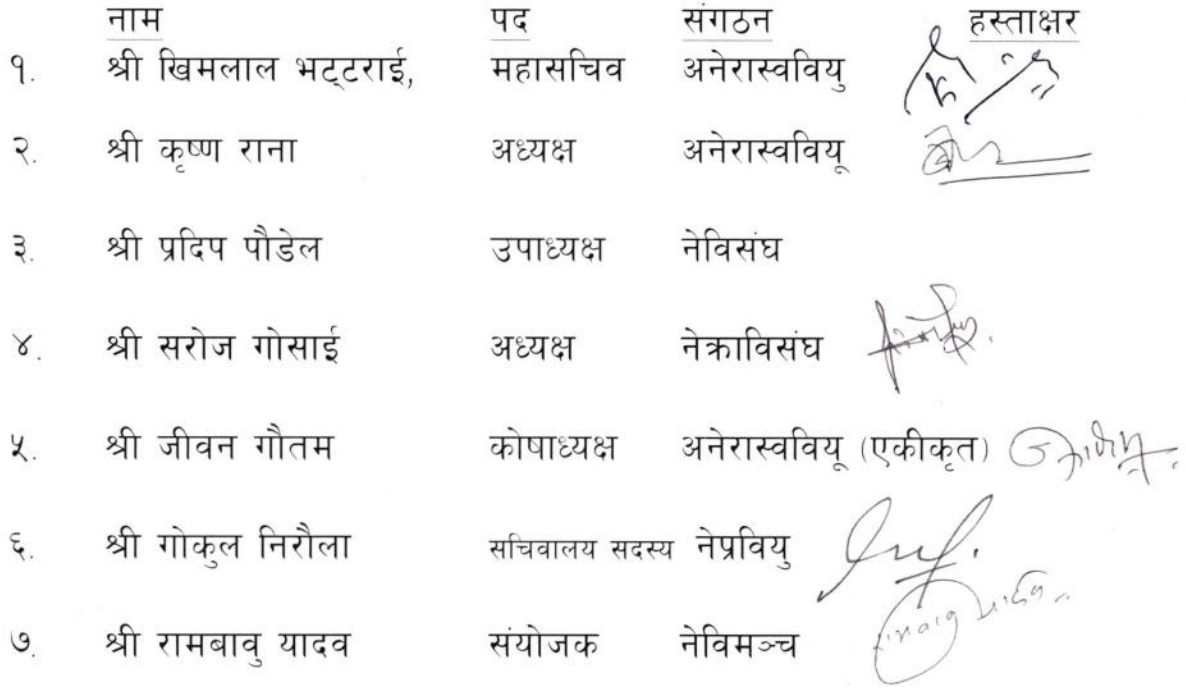 नाम पद संगठन हस्ताक्षर
१. श्री खिमलाल भट्टराई, महासचिव अनेरास्ववियु
२. श्री कृष्ण राना अध्यक्ष अनेरास्ववियू
३. श्री प्रदिप पौडेल उपाध्यक्ष नेविसंघ
४. श्री सरोज गोसाई अध्यक्ष नेक्राविसंघ
५. श्री जीवन गौतम कोषाध्यक्ष अनेरास्ववियू (एकीकृत)
६. श्री गोकुल निरौला सचिवालय सदस्य नेप्रवियु
७. श्री रामबावु यादव संयोजक नेविमञ्च